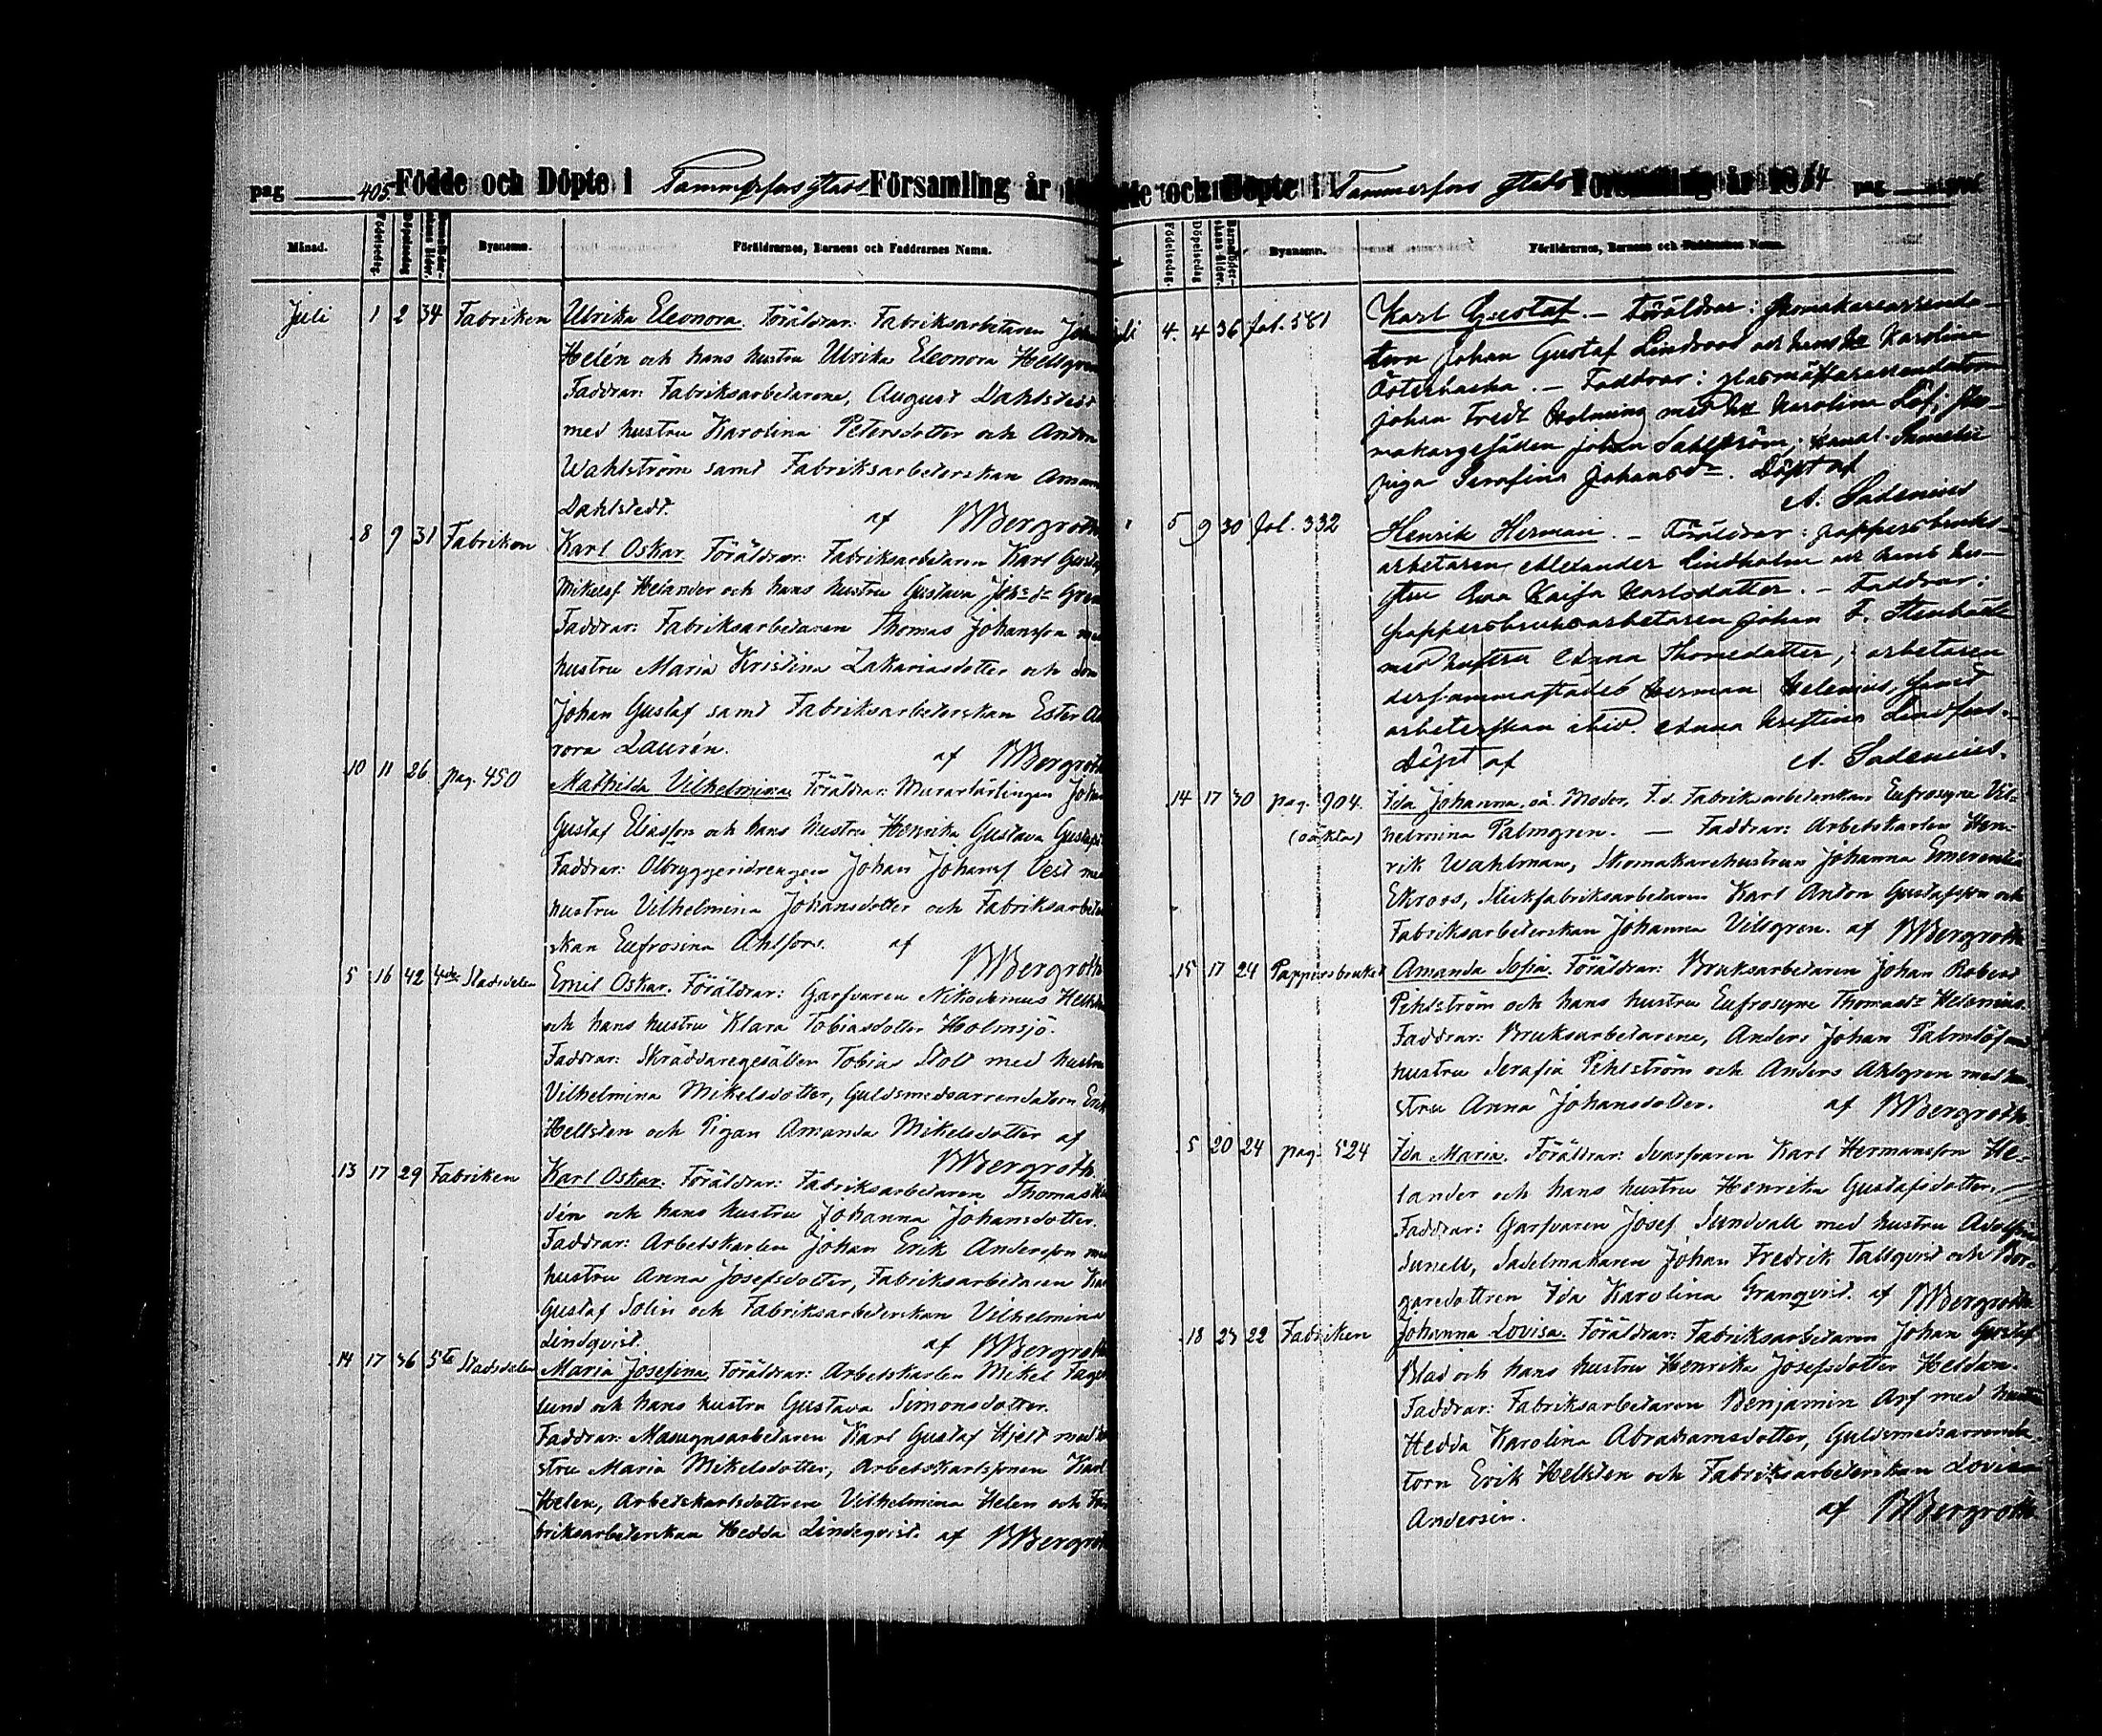 pag 405. Födde och Döpte i Tammerfors stads Församling år
Månad. Födelsedag. Döpelsedag Byanamn. Föräldrarnes, Barnens och Faddrarnes Namn.
Juli 1 2 34 Fabriken Ulrika Eleonora. Föräldrar: Fabriksarbetaren
Helén och hans hustru Ulrika Eleonora
Faddrar: Fabriksarbetarene, August Dahlstedt
med hustru Karolina Petersdotter och Anton
Wahlström samt Fabriksarbeterskan
Dahlstedt. af BBergroth
8 9 31 Fabriken Karl Oskar. Föräldrar: Fabriksarbetaren Karl Gustaf
Mikelsf Helander och hans hustru Gustava
Faddrar: Fabriksarbetaren Thomas Johansson
hustru Maria Kristina Zakariasdotter och
Johan Gustaf samt Fabriksarbeterskan Ester
rora Laurén. af BBergroth
10 11 26 pag. 450 Mathilda Vilhelmina Föräldrar: Murarlärlingen
Gustaf Eliasson och hans hustru Henrika Gustava
Faddrar: Ölbryggeridrengen Johan Johansf Vest
hustru Vilhelmina Johansdotter och
skan Eufrosina Ahlfors. af BBergroth
5 16 42 4de Stadsdelen Emil Oskar. Föräldrar: Garfvaren Nikodemus
och hans hustru Klara Tobiasdotter Holmsjö.
Faddrar: Skräddaregesällen Tobias Stolt med hustru
Vilhelmina Mikelsdotter, Guldsmedsarrendatorn Erik
Hellsten och Pigan Amanda Mikelsdotter af
BBergroth
13 17 29 Fabriken Karl Oskar. Föräldrar: Fabriksarbetaren Thomas
dén och hans hustru Johanna Johansdotter.
Faddrar: Arbetskarlen Johan Erik Andersson
hustru Anna Josefsdotter, Fabriksarbetaren
Gustaf Solin och Fabriksarbeterskan Vilhelmina
Lindqvist. af BBergroth
14 17 36 5te Stadsdelen Maria Josefina, Föräldrar: Arbetskarlen Mikel
lund och hans hustru Gustava Simonsdotter.
Faddrar: Masugnsarbetaren Karl Gustaf Hjelt med
stru Maria Mikelsdotter, Arbetskarlssonen Karl
Helen, Arbetskarlsdottren Vilhelmina Helen och
briksarbeterskan Hedda Lindeqvist. af BBergroth
och Döpte i Tammerfors stads Församling år 18 4 pag
Födelsedag. Döpelsedag Byanamn. Föräldrarnes, Barnens och Faddrarnes Namn.
4. 4 36 fol. 581 Karl Gustaf. — Föräldrar:
torn Johan Gustaf Lindroos och hans Karolina
Österbacka. — Faddrar:
Johan Fredr Holming med Karolina Löf,
makargesällen Johan Sahlström,
piga Serafina Johansdr. Döpt af
A. Sadenius
5 9 30 fol. 332 Henrik Herman. — Föräldrar: pappersbruks-
arbetaren Alexander Lindholm och hans hu-
stru Eva Kaisa Karlsdotter. — Faddrar:
pappersbruksarbetaren Johan F. Stenbäck
med hustru Anna Thomedotter, arbetaren
dersammastädes Herman Helenius, samt
arbeterskan ibid. Anna Kristina Lindfors.
Döpt af A. Sadenius.
14 17 30 pag. 904. Ida Johanna, oä. Moder, F.d. Fabriksarbeterskan Eufrosyne Vil-
(oäkta) helmina Palmgren. — Faddrar: Arbetskarlen Hen-
rik Wahlman, Skomakarehustrun Johanna Emerentia
Ekroos, Stickfabriksarbetaren Karl Anton Gustafsson och
Fabriksarbeterskan Johanna Vilsgren. af BBergroth
15 17 24 Pappersbruket Amanda Sofia. Föräldrar: Bruksarbetaren Johan Robert
Pihlström och hans hustru Eufrosyne Thomasdr Helenius.
Faddrar: Bruksarbetarene, Anders Johan Palmlöf
hustru Serafia Pihlström och Anders Ahlgren med hu-
stru Anna Johansdotter. af BBergroth
5 20 24 pag. 524 Ida Maria. Föräldrar: Svarfvaren Karl Hermansson He-
lander och hans hustru Henrika Gustafsdotter.
Faddrar: Garfvaren Josef Sundvall med hustru Adolfina
Sunell, Sadelmakaren Johan Fredrik Tallqvist och Bor-
garedottren Ida Karolina Granqvist. af BBergroth
18 23 22 Fabriken Johanna Lovisa. Föräldrar: Fabriksarbetaren Johan Gustaf
Blad och hans hustru Henrika Josefsdotter Heldan.
Faddrar: Fabriksarbetaren Benjamin Arf med hustru
Hedda Karolina Abrahamsdotter, Guldsmedsarrenda-
torn Erik Hellsten och Fabriksarbeterskan Lovisa
Andersin. af BBergroth